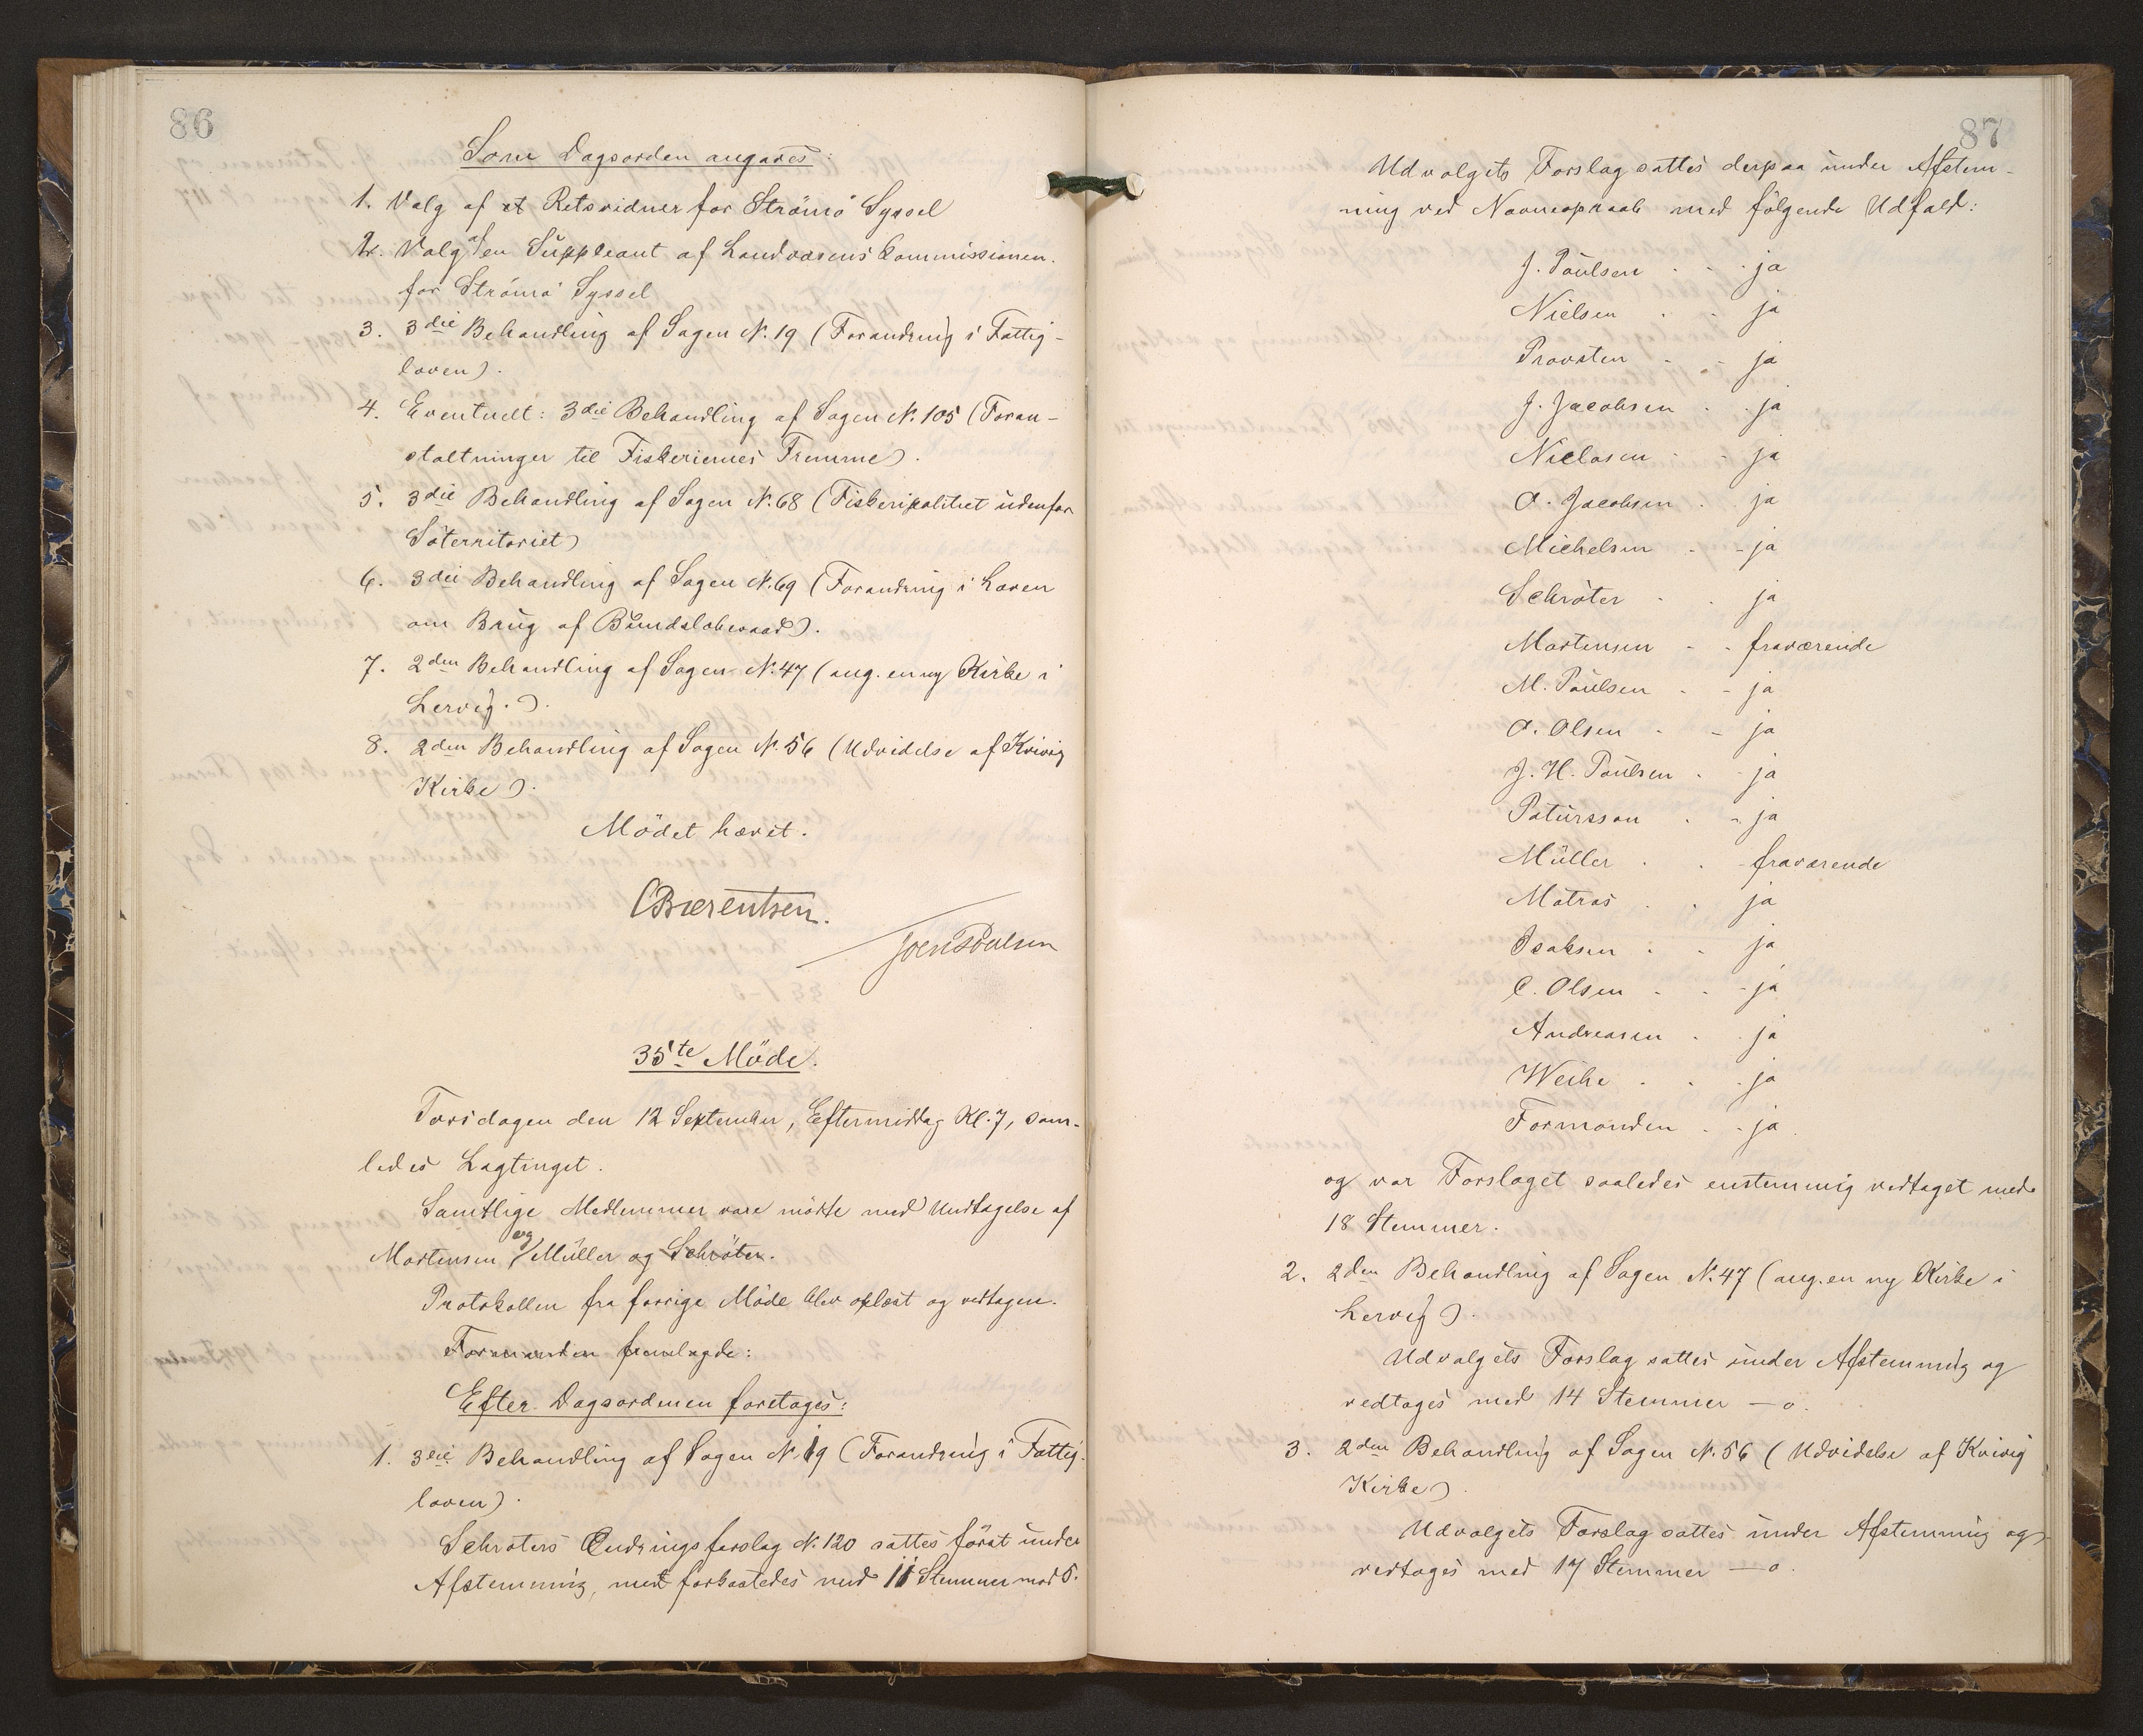 86
Som Dagsorden angaves:
1. Valg af et Retsvidner for Strömö Syssel
2. Valg af en Suppleant af Landvæsens Commissionen.
for Strömö Syssel
3. 3die Behandling af Sagen N. 19 (Forandring i Fattig-
loven).
4. Eventuelt: 3die Behandling af Sagen N. 105 (Foran-
staltninger til Fiskeriernes Fremme).
5. 3die Behandling af Sagen N. 68 (Fiskeripolitiet udenfor
Söterritoriet)
6. 3die Behandling af Sagen N. 69 (Forandring i Loven
om Brug af Bundslæbevaad).
7. 2den Behandling af Sagen N. 47 (ang. en ny Kirke i
Lervig.).
8. 2den Behandling af Sagen N. 56 (Udvidelse af Kvivig
Kirke).
Mödet hævet.
CBærentsen.
Joen Poulsen
35te Möde.
Torsdagen den 12 September, Eftermiddag Kl. 7, sam-
ledes Lagtinget.
Samtlige Medlemmer vare mödte med Undtagelse af
Mortensen, og Müller og Schröter.
Protokollen fra forrige Möde blev oplæst og vedtagen.
Formanden fremlagde:
Efter Dagsordenen foretages:
1. 3die Behandling af Sagen N. 19 (Forandring i Fattig-
loven).
Schröters Ændringsforslag N. 120 sattes först under
Afstemning, men forkastedes med 11 Stemmer mod 5.
87
Udvalgets Forslag sattes derpaa under Afstem-
ning ved Navneopraab med fölgende Udfald:
J. Poulsen - - ja
Nielsen - - ja
Provsten - - ja
J. Jacobsen - - ja
Niclasen - - ja
O. Jacobsen - ja
Michelsen - - ja
Schröter - - ja
Mortensen - - fraværende
M. Poulsen - - ja
O. Olsen - - ja
J. H. Poulsen - - ja
Patursson - - ja
Müller - - fraværende
Matras - - ja
Isaksen - - ja
C. Olsen - - - ja
Andreasen - - ja
Weihe - - - ja
Formanden - - ja.
og var Forslaget saaledes enstemmig vedtaget med
18 Stemmer.
2. 2den Behandling af Sagen N. 47 (ang. en ny Kirke i
Lervig).
Udvalgets Forslag sattes under Afstemning og
vedtoges med 14 Stemmer — o.
3. 2den Behandling af Sagen N. 56 (Udvidelse af Kvivig
Kirke).
Udvalgets Forslag sattes under Afstemning og
vedtoges med 17 Stemmer — o.